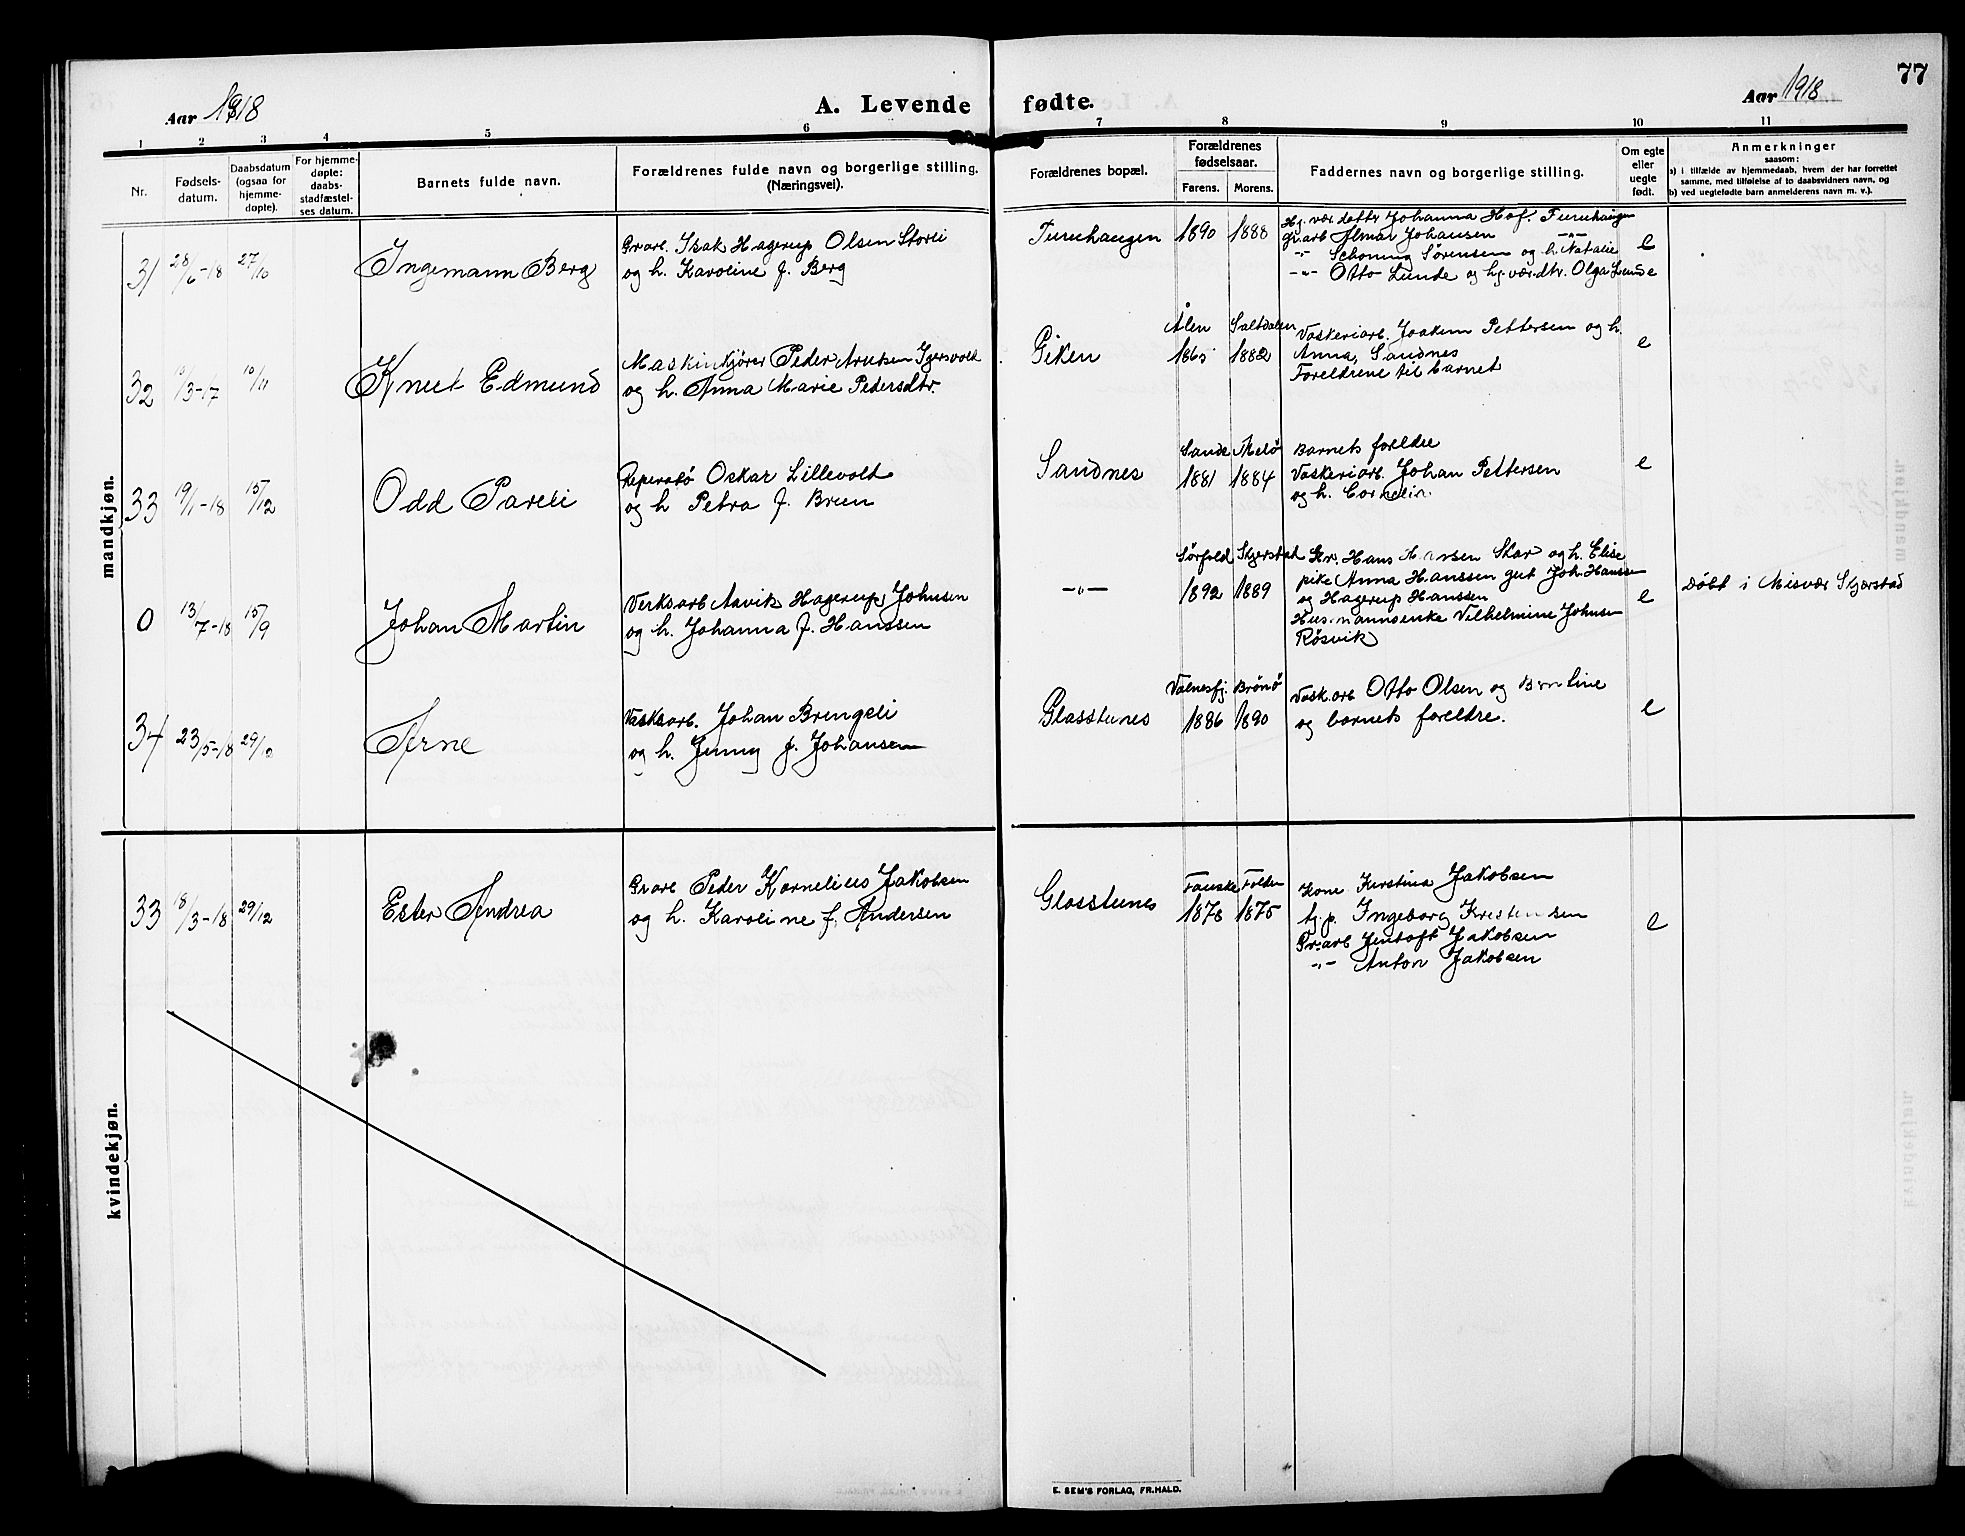 Aar 1918
A. Levende fødte.
Aar 1918
77
1 2 3 4 5 6 7 8 9 10 11
Nr.
Fødsels-
datum.
Daabsdatum
(ogsaa for
hjemme-
døpte).
For hjemme-
døpte:
daabs-
stadfæstel-
ses datum.
Barnets fulde navn.
Forældrenes fulde navn og borgerlige stilling.
(Næringsvei).
Forældrenes bopæl.
Forældrenes
fødselsaar.
Farens. Morens.
Faddernes navn og borgerlige stilling.
Om egte
eller
uegte
født.
Anmerkninger
saasom:
a) i tilfælde av hjemmedaab, hvem der har forrettet
samme, med tilføielse af to daabsvidners navn, og
b) ved uegtefødte barn anmelderens navn m. v.).
mandkjøn.
31 28/6-18 27/10
Ingemann Berg
Grarb. Isak Hagerup Olsen Storli
og h. Karoline f. Berg
Furuhaugen 1890 1888
Hj. vær. datter Johanna Hof. Furuhaugen
grarb Almar Johansen -"-
-"- Schøning Sørensen og h. Natalie
-"- Otto Lunde og hj.vær.dtr. Olga Lunde
e
32 /3-17 10/11
Knut Edmund
Maskinkjører Peder Arntsen
og h. Anna Marie Pedersdtr.
Giken
Ålen Saltdalen
1865 1882
Vaskeriarb. Joakim Pettersen og h.
Anna, Sandnes
Foreldrene til barnet
e
33 19/1-18 15/12
Odd Pareli
Reperatø Oskar Lillevolt
og h Petra f. Bruun
Sandnes
Sande Melø
1881 1884
Barnets foreldre
Vaskeriarb. Johan Pettersen
og h. Cornelia.
e
0 13/7-18 15/9
Johan Martin
Verksarb Aavik Hagerup Johnsen
og h. Johanna f. Hanssen
-"-
Sørfold Skjerstad
1892 1889
Gr. Hans Hansen Skar og h. Elise
pike Anna Hanssen gut Joh. Hanssen
og Hagerup Hanssen
Husmannsenke Vilhelmine Johnsen
Røsvik
e
Døbt i Misvær Skjerstad
34 23/5-18 29/12
Arne
Vasksarb. Johan Brengeli
og h. Jenny f. Johansen
Glasstunes
Valnesfj. Brønø
1886 1890
Vask.arb Otto Olsen og Berntine
og barnets foreldre.
e
kvindekjøn.
33 18/3-18 29/12
Ester Andrea
Grarb Peder Kornelius Jakobsen
og h. Karoline f. Andersen
Glasstunes
Fauske Folden
1878 1875
Kone Kirstina Jakobsen
tj.p. Ingeborg Kristensen
Gr.arb Jentoft Jakobsen
-"- Anton Jakobsen
e
E. SEM'S FORLAG, FR.HALD.